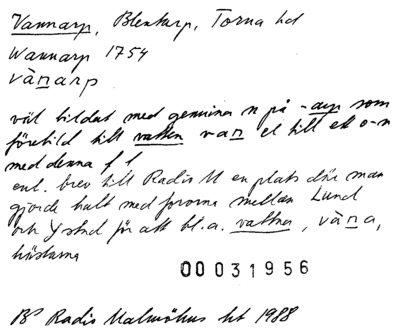 Vannarp, Blentarp, Torna hd
Wannarp 1754
vànarp
väl bildat med genuina n på -arp som
förebild till vatten van el till ett o-n
med denna f l
enl. brev till Radio M en plats där man
gjorde halt med fororna mellan Lund
och Ystad för att bl.a. vattna, vàna,
hästarna
00031956
BP Radio Malmöhus ht 1988